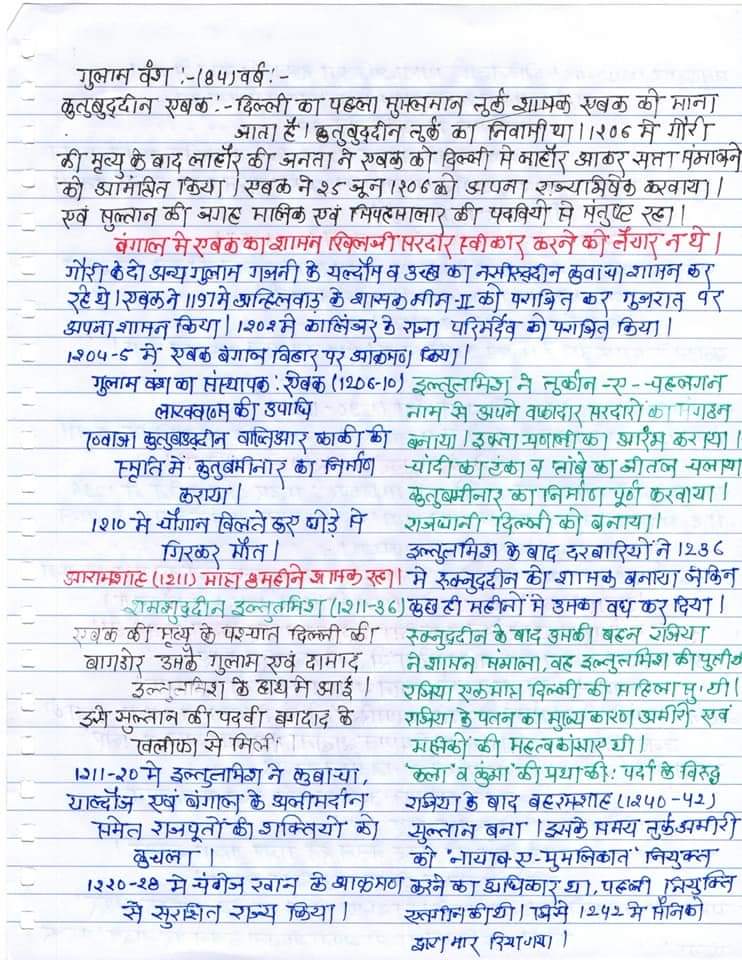 गुलाम वंश :-(84) वर्ष :-
कुतुबुद्दीन एबक :- दिल्ली का पहला मुसलमान तुर्क शासक एबक को माना
जाता है। कुतुबुद्दीन तुर्क का निवासी था। 1206 मे गौरी
की मृत्यु के बाद लाहौर की जनता ने एबक को दिल्ली से लाहौर आकर सत्ता संभालने
को आमंत्रित किया। एबक ने 25 जून 1206 को अपना राज्याभिषेक करवाया।
एवं सुल्तान की जगह मालिक एवं सिपहसालार की पदवियों से संतुष्ट रहा।
बंगाल मे एबक का शासन खिलजी सरदार स्वीकार करने को तैयार न थे।
गौरी के दो अन्य गुलाम गजनी के यल्दौज व उच्छ का नसीरुद्दीन कुवाचा शासन कर
रहे थे। एबक ने 1197 मे अन्हिलवाड़ के शासक भीम-II को पराजित कर गुजरात पर
अपना शासन किया। 1202 मे कालिंजर के राजा परिमर्दिव को पराजित किया।
1204-5 मे एबक बंगाल बिहार पर आक्रमण किया।
गुलाम वंश का संस्थापक : एबक (1206-10)
लाखबख्श की उपाधि
ख्वाजा कुतुबउद्दीन बख्तिआर काकी की
स्मृति में कुतुबमीनार का निर्माण
कराया।
1210 मे चौगान खेलते हुए घोड़े से
गिरकर मौत।
आरामशाह (1211) मात्र 8 महीने शासक रहा।
शमशुद्दीन इल्तुतमिश (1211-36)
एबक की मृत्यु के पश्चात दिल्ली की
बागडोर उसके गुलाम एवं दामाद
इल्तुतमिश के हाथ मे आई।
इसे सुल्तान की पदवी बगदाद के
खलीफा से मिली
1211-20 मे इल्तुतमिश ने कुबाचा,
याल्दौज एवं बंगाल के अलीमर्दान
समेत राजपूतों की शक्तियों को
कुचला।
1220-28 मे चंगेज खान के आक्रमण
से सुरक्षित राज्य किया।
इल्तुतमिश ने तुर्कान-ए-चहलगन
नाम से अपने वफादार सरदारों का संगठन
बनाया। इक्ता प्रणाली का आरंभ कराया।
चांदी का टंका व तांबे का जीतल चलाया
कुतुबमीनार का निर्माण पूर्ण करवाया।
राजधानी दिल्ली को बनाया।
इल्तुतमिश के बाद दरबारियों ने 1236
मे रुक्नुद्दीन को शासक बनाया लेकिन
कुछ ही महीनों मे उसका वध कर दिया।
रुक्नुद्दीन के बाद उसकी बहन रजिया
ने शासन संभाला, वह इल्तुतमिश की पुत्री थी
रजिया एकमात्र दिल्ली की महिला सु. थी।
रजिया के पतन का मुख्य कारण अमीरों एवं
मलीकों की महत्वकांक्षाए थी।
कला व कुंभा की प्रथा की : पर्दा के विरुद्ध
रजिया के बाद बहरामशाह (1240-42)
सुल्तान बना। इसके समय तुर्क अमीरों
को "नायाब-ए-मुमलिकात" नियुक्त
करने का अधिकार था, पहली नियुक्ति
एतगीन की थी। जिसे 1242 मे सैनिकों
द्वारा मार दिया गया।